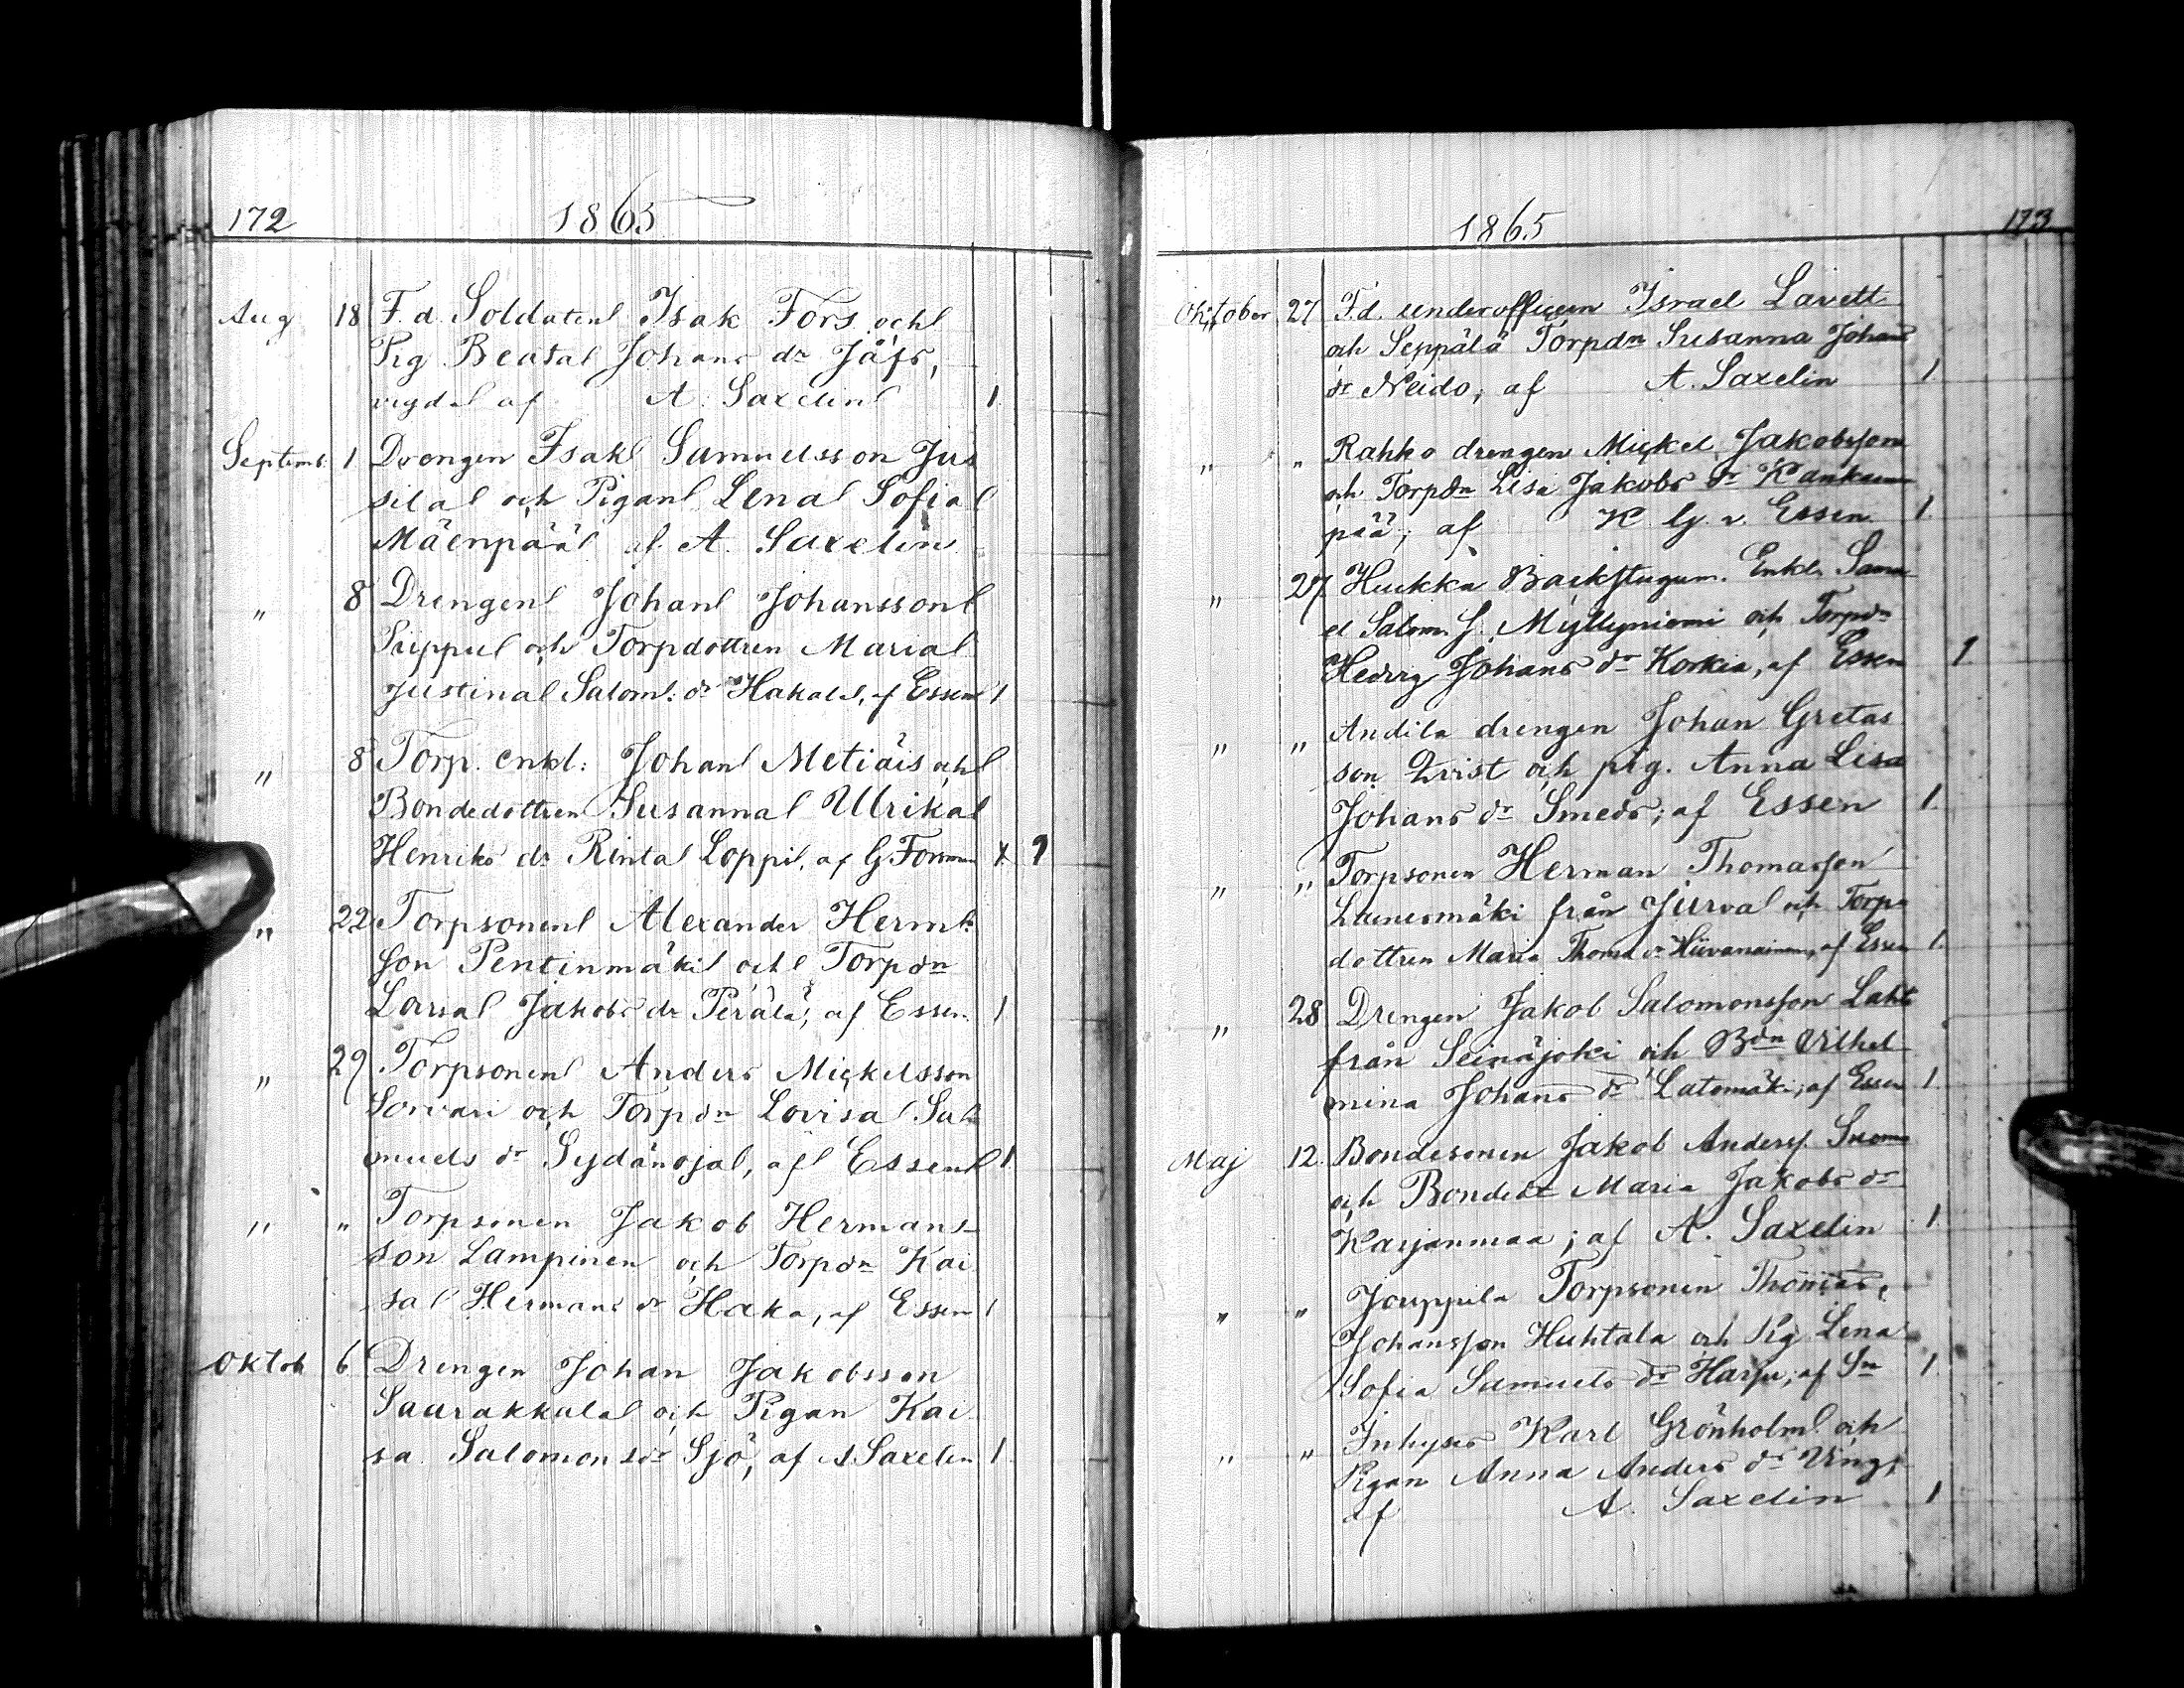 172 1865
Aug 18 F.d. Soldaten Isak Fors och
Pig Beata Johans dr Jåfs,
vigda af A. Saxelin 1
Septemb. 1 Drengen Isak Samuelsson Jus
sila och Pigan Lena Sofia
Mäenpää af A. Saxelin
" 8 Drengen Johan Johansson
Piippu och Torpdottren Maria
Justina Salom. dr Hakala, af Essen 1
" 8 Torp. enkl: Johan Metiäis och
Bondedottren Susanna Ulrika
Henriks dr Rinta Loppi, af G. Forsman x 1
" 22 Torpsonen Alexander Herm.
son Pentinmäki och Torpdn
Lovisa Jakobs dr Perälä, af Essen 1
" 29 Torpsonen Anders Mickelsson
Sorvari och Torpdn Lovisa Sa
muels dr Sydänoja, af Essen 1
" " Torpsonen Jakob Hermans-
son Lampinen och Torpdn Kai
sa Hermans dr Haka, af Essen 1
Oktob 6 Drengen Johan Jakobsson
Saurakkala och Pigan Kai
sa Salomons dr Sjö, af A Saxelin 1
1865 173
Oktober 27 F.d. underofficern Israel Lavett
och Seppälä Torpdn Susanna Johans
dr Neido, af A. Saxelin 1
" " Rahko drengen Mickel Jakobsson
och Torpdn Lisa Jakobs dr Kankaan
pää; af K G. v. Essen 1
" 27 Huckka Backstugum. Enkl. Samu
el Salom. S. Myllyniemi och Torpdn
Hedvig Johans dr Korkia, af Essen 1
" " Andila drengen Johan Gretas
son Qvist och pig. Anna Lisa
Johans dr Smeds; af Essen 1
" " Torpsonen Herman Thomasson
Launesmäki från Jurva och Torp
dottren Maria Thomas dr Hiivanainen, af Essen 1
" 28 Drengen Jakob Salomonsson Lahti
från Seinäjoki och Bdn Vilhel
mina Johans dr Latomäki; af Essen 1
Maj 12. Bondesonen Jakob Anderss. Snom
och Bondedr Maria Jakobs dr
Karjanmaa; af A. Saxelin 1
" " Jouppila Torpsonen Thomas,
Johansson Huhtala och Pig Lena
Sofia Samuels dr Harju; af Sn 1
" " Inhyses Karl Grönholm och
Pigan Anna Anders dr Ving,
af A. Saxelin 1